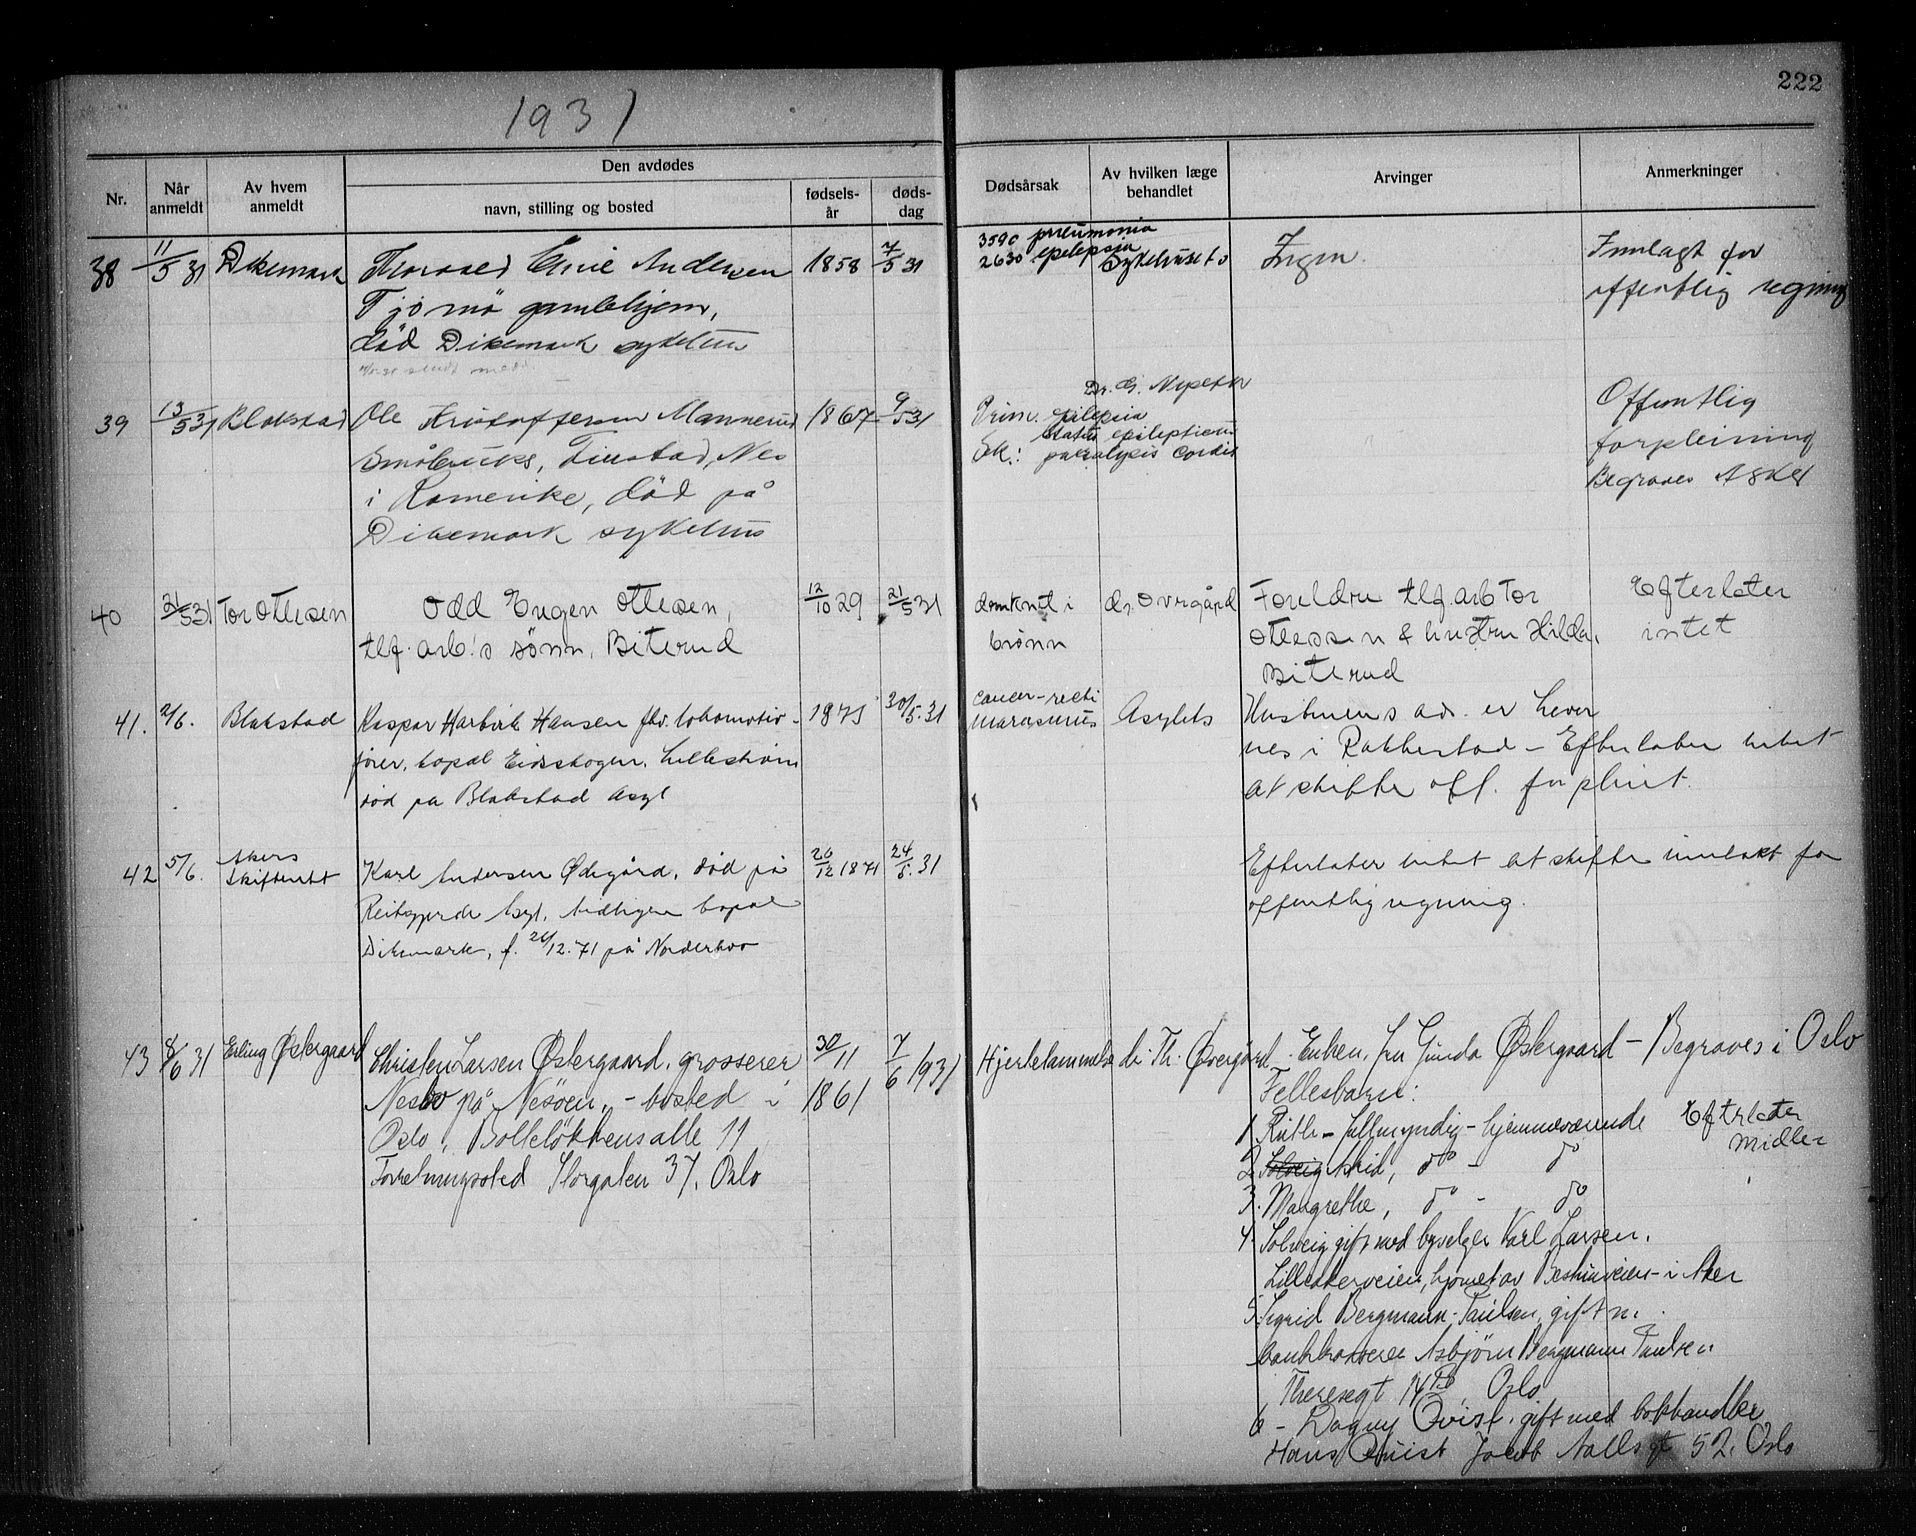 222
1931
Nr.
Når anmeldt
Av hvem anmeldt
Den avdødes
navn, stilling og bosted
fødsels-år
døds-dag
Dødsårsak
Av hvilken læge behandlet
Arvinger
Anmerkninger
38 11/5 31 Dikemark Andersen 1858 7/5 31 3590 pneumonia Ingen. Innlagt for
2630 epilepsia Sykehusets offentlig regning
Tjømø gamlehjem,
død Dikemark sykehus
39 13/5 31 Blakstad Ole Kristoffersen Mannerud 1867 9/5 31 Prim. epilepsia Dr. G. Offentlig
status epilepticus forpleining
Småbruks, Nes Sek.: paralysis cordis Begraves Asker
i Romerike, død på
Dikemark sykehus
40 21/5 31 Tor Ottesen Odd Eugen Ottesen, 12/10 29 21/5 31 druknet i dr. Overgård Foreldre tlf. arb Tor Efterlater
tlf. arb.'s sønn, Biterud brønn Ottessen & hustru Hilda, intet
Biterud
41. 2/6. Blakstad Kaspar Hansen fhv. lokomotiv- 1875 30/5. 31 cancer recti Asylets Hustruens ad. er
marasmus
fører, bopæl Eidskogen, Lillestrøm i Rakkestad – Efterlater intet
død på Blakstad Asyl at skifte off. forpleiet.
42 5/6. Akers Skifterett Karl Andersen Ødegård, død på 26/12 1871 24/5. 31 Efterlater intet at skifte innlakt for
Reitgjerde Asyl, tidligere bopæl offentlig regning.
Dikemark, f. 26/12. 71 på Norderhov
43 8/6 31 Erling Østergaard Christen Larsen Østergaard, grosserer 30/11 7/6 1931 Hjertelammelse dr. Th. Øvergård Enken, fru Gunda Østergaard – Begraves i Oslo
Nesbo på Nesøen, – bosted i 1861 Fellesbarn:
Oslo, Bolteløkkens alle 11 1. Ruth – fullmyndig – hjemmeværende Efterlater midler
Forretningssted Storgaten 37, Oslo 2. Solveig do – do
3. Margrethe, do – do
4. Solveig gift med Karl Larsen,
Lilleakerveien, hjørnet av i Aker
5. Sigrid Bergmann-Paulsen, gift m.
Asbjørn Bergmann Paulsen
Theresegt 14 B, Oslo
6 – Dagny Qvist, gift med bokhandler
Hans Quist Jacob Aallsgt 52, Oslo